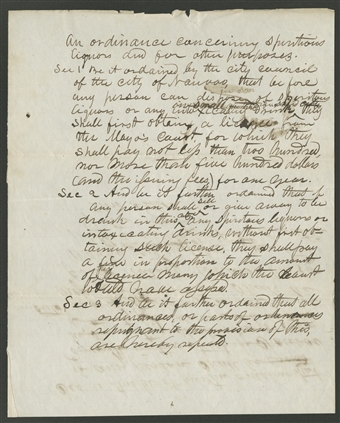 An ordinance concerning spiritous
liquors and for other purposes.
Sec 1 Be it ordained by the city council
of the city of Nauvoo, that before
any person can dispose of spiritous
in small quantities
liquors or any intoxicating drinks they
shall first obtain a license from
the Mayor's Court for which they
shall pay not less than two hundred
nor more than five hundred dollars
(and the fees) for one year.
Sec 2 And be it further ordained that if
any person shall sell or give away to be
drunk in this any spiritous liquors or
intoxicating drinks, without first ob-
taining such license, they shall pay
a fine in proportion to the amount
of license money which the Court
would have
Sec 3 And be it further ordained that all
ordinances, or parts of ordinances
repugnant to the provisions of this,
are hereby repealed.